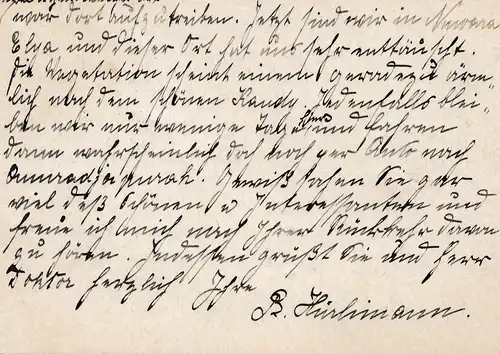 war dort aufzutreiben. Jetzt sind wir in Nuwara
Elya und dieser Ort hat uns sehr enttäuscht.
Die Vegetation scheint einem geradezu ärm-
lich nach dem schönen Kandy. Jedenfalls blei-
ben wir nur wenige Tage hier und fahren
dann wahrscheinlich doch noch per Auto nach
Gewiß sahen Sie gar
viel deß Schönen u Interessanten und
freue ich mich nach Ihrer Rückkehr davon
zu hören. Indessen grüßt Sie und Herr
Doktor herzlich Ihre
B. Hürlimann.